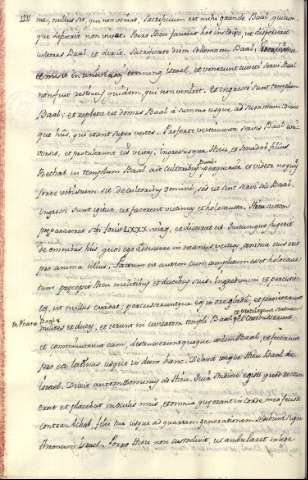 me, nullus sit, qui non veniat, sacrificium est mihi grande Baal, quicum
que defuerit non vivet. Porro Iheu faciebat hoc insidiose, ut disperderet
cultores Baal. et dixit. Sanctificate diem solemnem Baal,
et misit in universos terminos Israel, et venerunt cuncti servi Baal
non fuit residuus quidem, qui non veniret. et ingressi sunt templum
Baal: et repleta est domus Baal a summo usque ad summum dixit
que his, qui erant super vestes. Proferte vestimenta servis Baal
et protulerunt eis vestes, ingressusque Iheu, et Ionadab filius
Rechab in templum Baal ait cultoribus Baal perquirite, et videte ne quis
forte vobiscum sit de cultoribus domini, sed ut sint servi soli Baal.
ingressi sunt igitur, ut facerent victimas et holocausta. Iheu autem
praeparaverat sibi foris LXXX. viros, et dixerat eis. quicumque fugerit
de omnibus his, quos ego adduxero in manus vestras, anima eius erit
pro anima illius. Factum est autem cum completum esset holocau
tum praecepit Iheu militibus et ducibus suis. Ingredimini et percutite
eos, ut nullus evadat, percusseruntque eos in ore gladii, et proiecerunt
milites et duces, et ierunt in civitatem templi Baal, et protulerunt statuam
et combusserunt eam, destruxeruntque aedem Baal, et fecerunt
pro ea latrinas usque in diem hanc. Delevit itaque Iheu Baal de
Israel. Dixit autem Dominus ad Iheu. Quia studiose egisti quod rectum
erat et placebat in oculis meis, et omnia quae erant in corde meo fecisti
contra domum Achab, filii tui usque ad quartam generationem sedebunt super
thronum Israel. Porro Iheu non custodivit, ut ambularet in lege